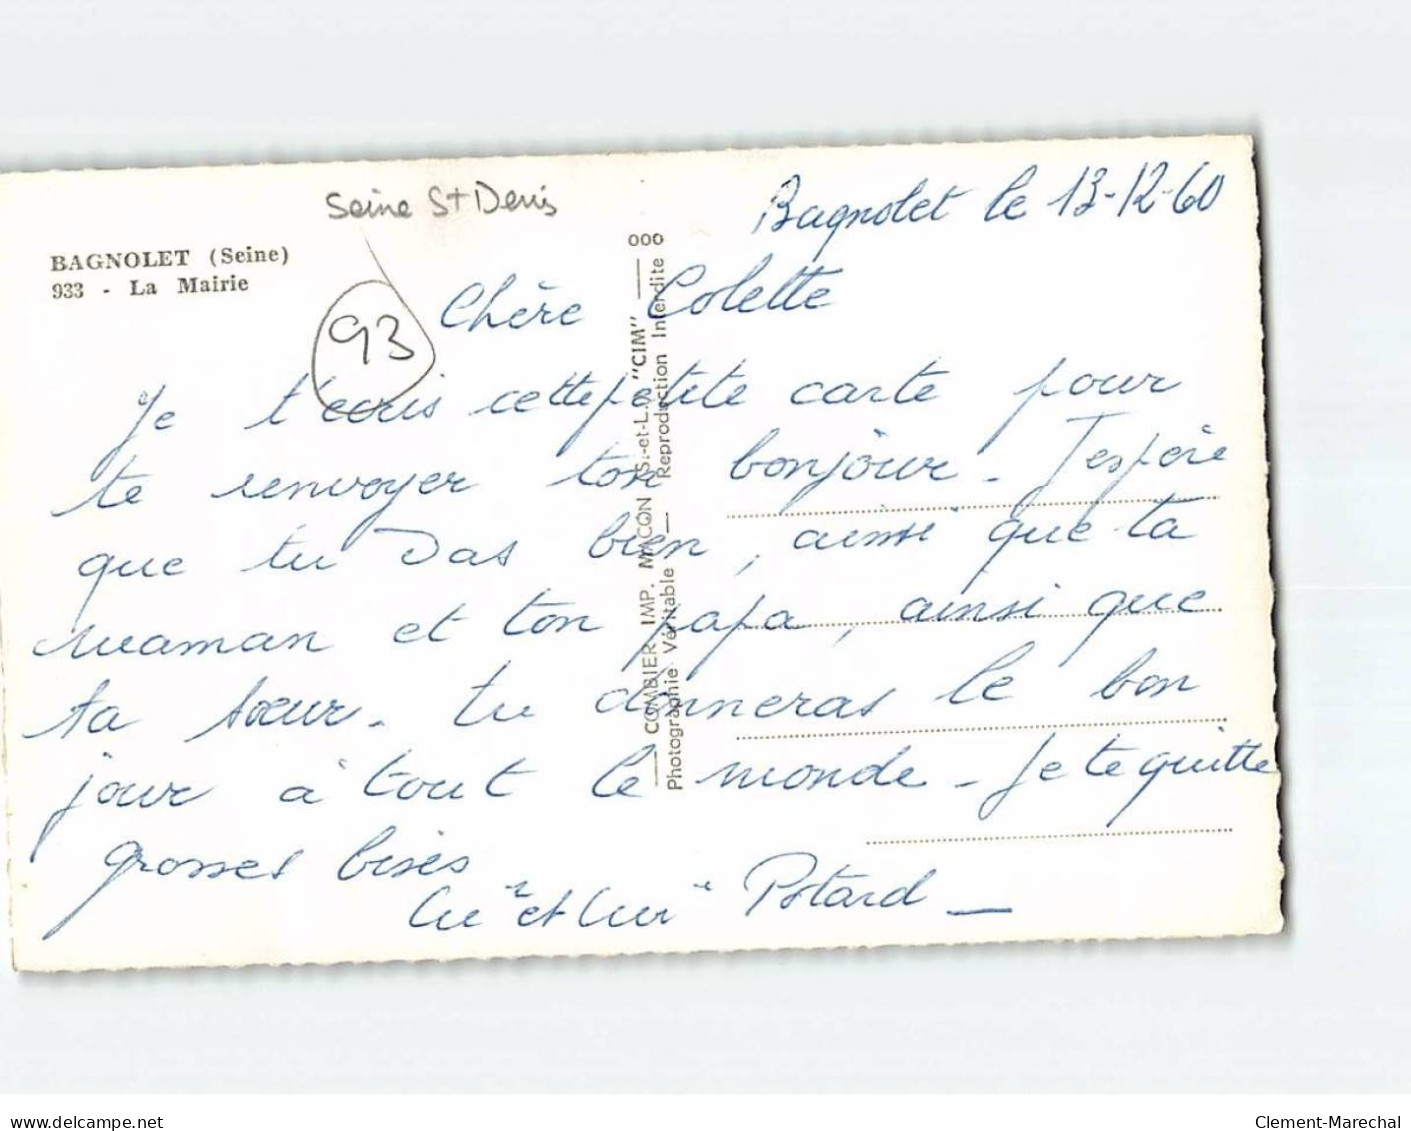 Seine St Denis
Bagnolet le 13-12-60
BAGNOLET (Seine)
933 - La Mairie
93
Chère Colette
Je t'ecris cette petite carte pour
te renvoyer ton bonjour - J'espère
que tu vas bien, ainsi que ta
maman et ton papa, ainsi que
ta sœur - tu donneras le bon
jour à tout le monde - Je te quitte
grosses bises
"et" Potard
000
COMBIER IMP. MACON (S.-et-L.) "CIM"
Photographie Véritable - Reproduction Interdite
www.delcampe.net
Clement-Marechal